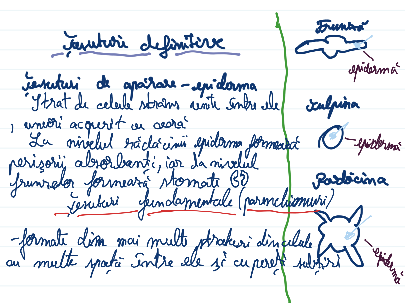 Țesuturi definitive
Țesuturi de apărare - epiderma
Strat de celule strâns unite între ele
, uneori acoperit cu ceară
La nivelul rădăcinii epiderma formează
perișorii absorbanți, iar la nivelul
frunzelor formează stomate
Țesuturi fundamentale (parenchimuri)
-formate din mai multe straturi din celule
cu multe spații între ele și cu pereți subțiri
Frunză
epidermă
tulpina
epidermă
Rădăcina
epidermă